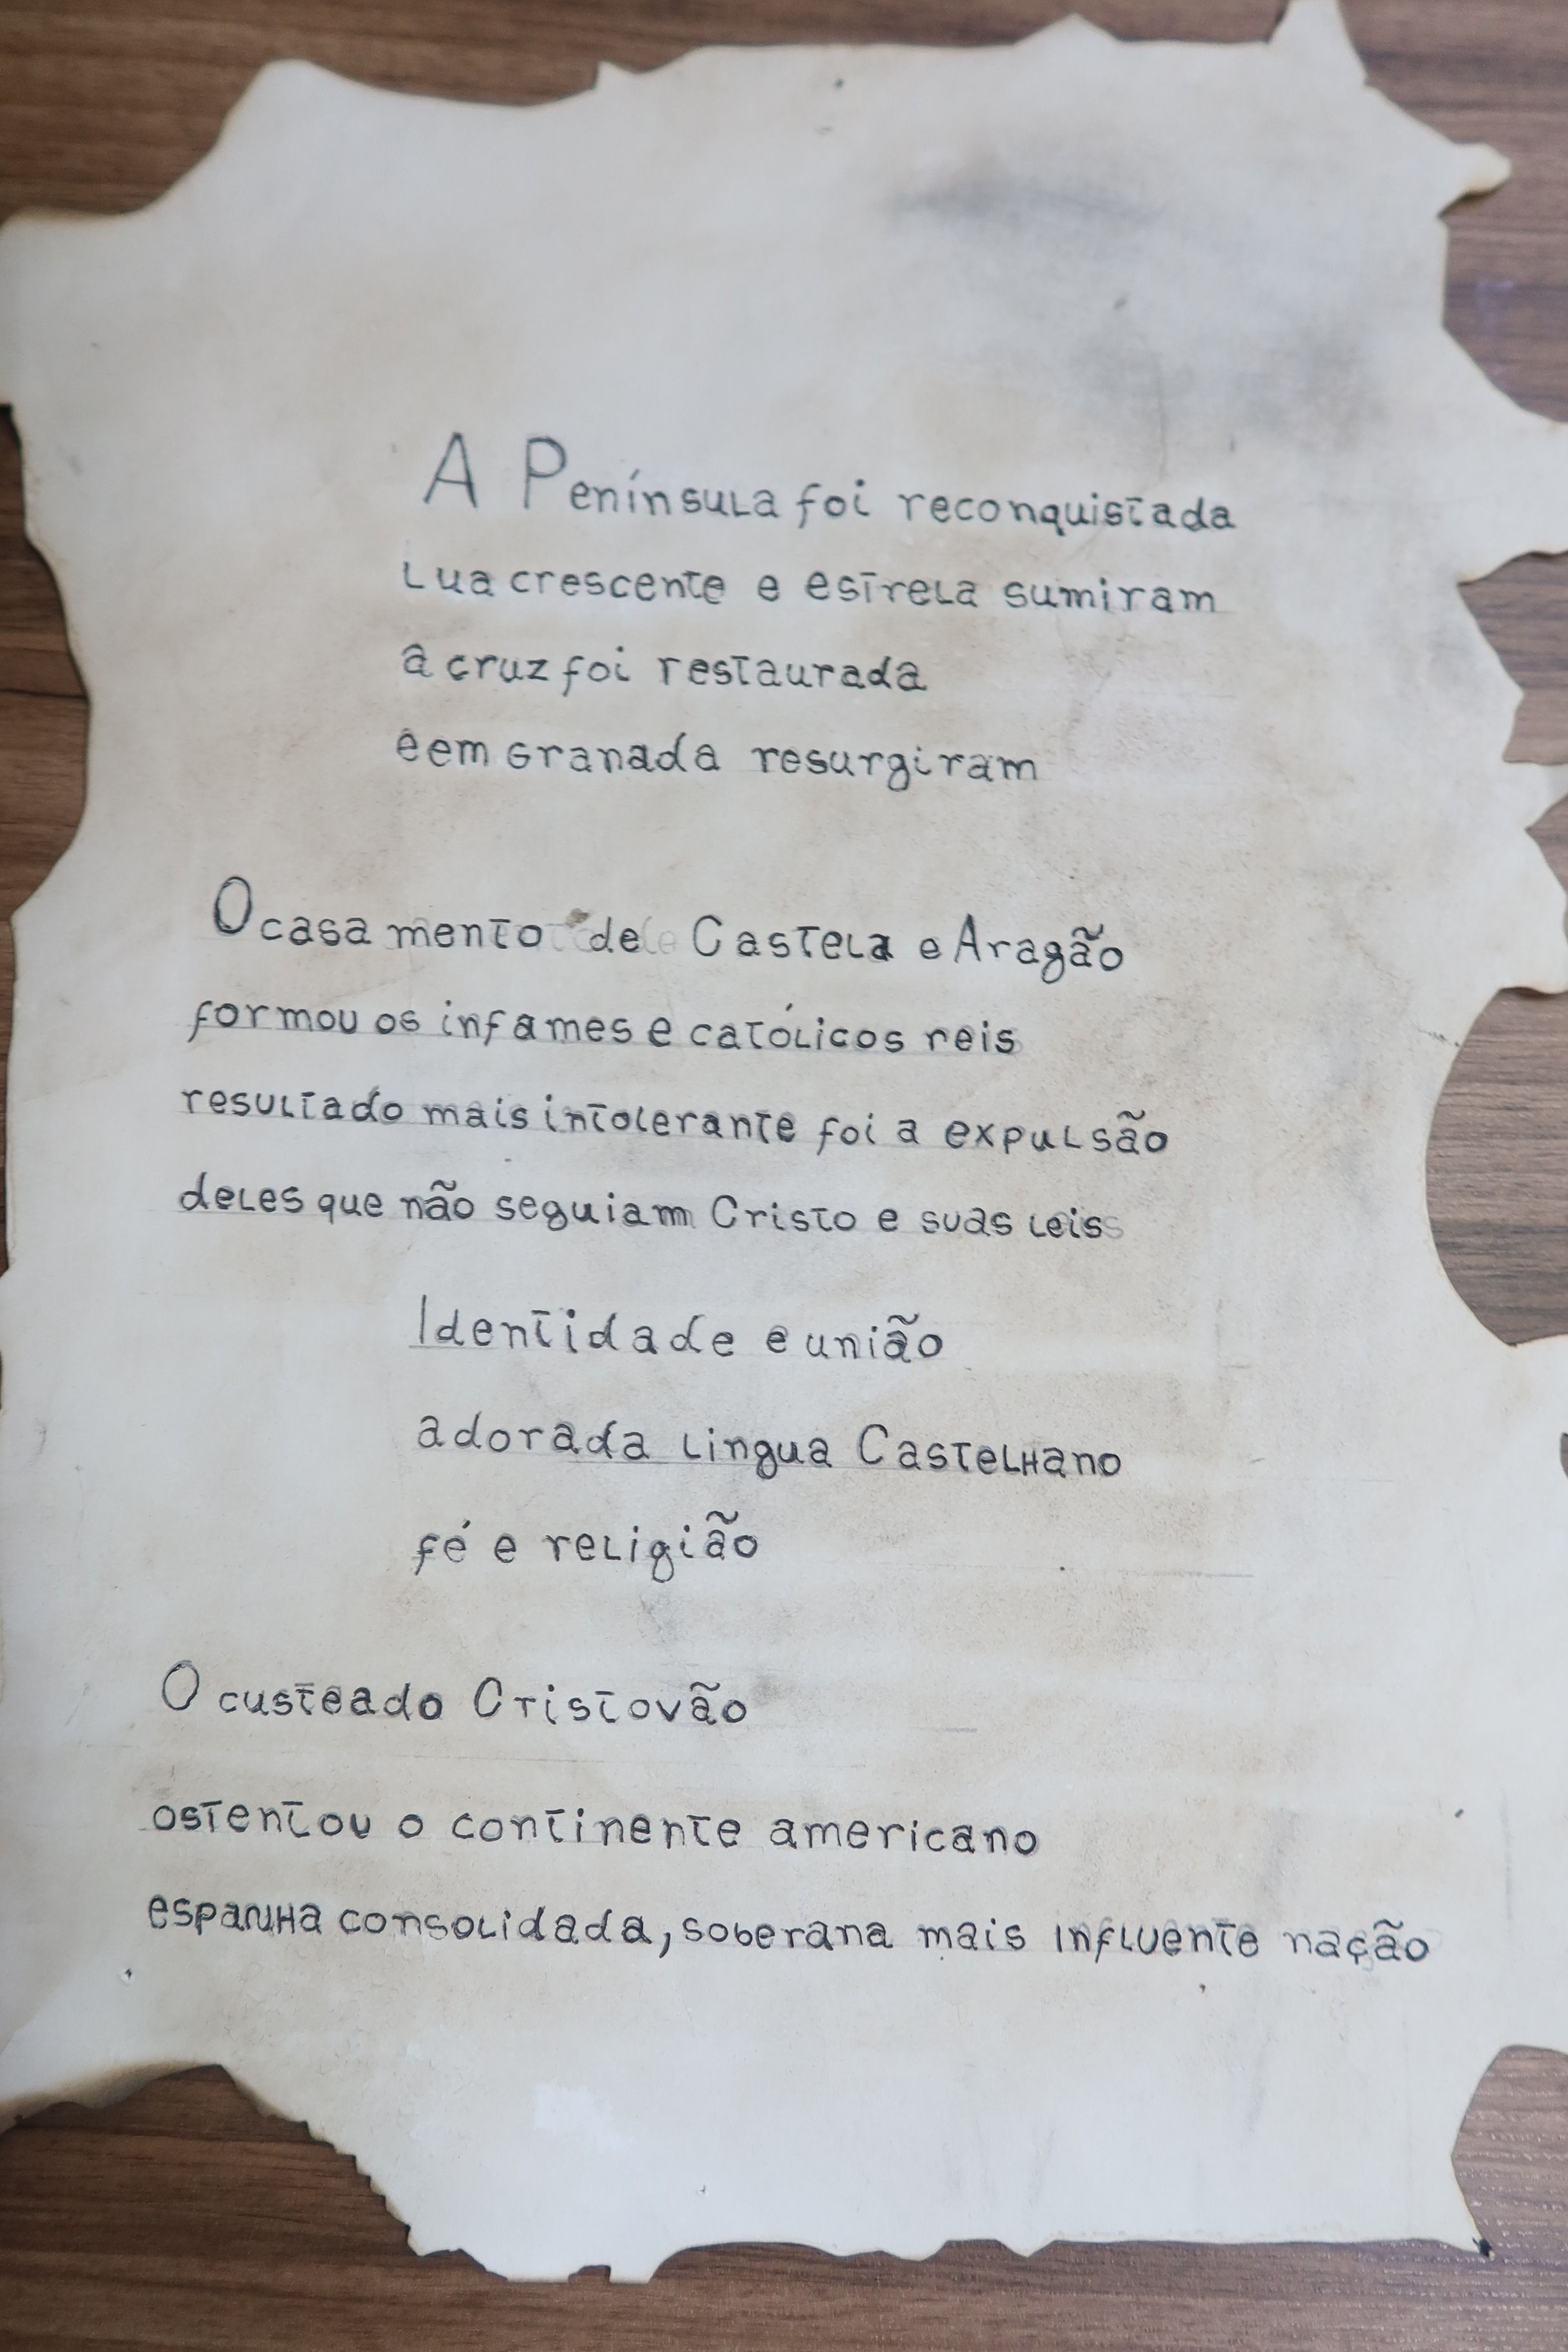 A Península foi reconquistada
Lua crescente e estrela sumiram
a cruz foi restaurada
e em Granada resurgiram
O casamento de Castela e Aragão
formou os infames e católicos reis
resultado mais intolerante foi a expulsão
deles que não seguiam Cristo e suas leis
Identidade e união
adorada lingua Castelhano
fé e religião
O custeado Cristovão
ostentou o continente americano
espanha consolidada, soberana mais influente nação